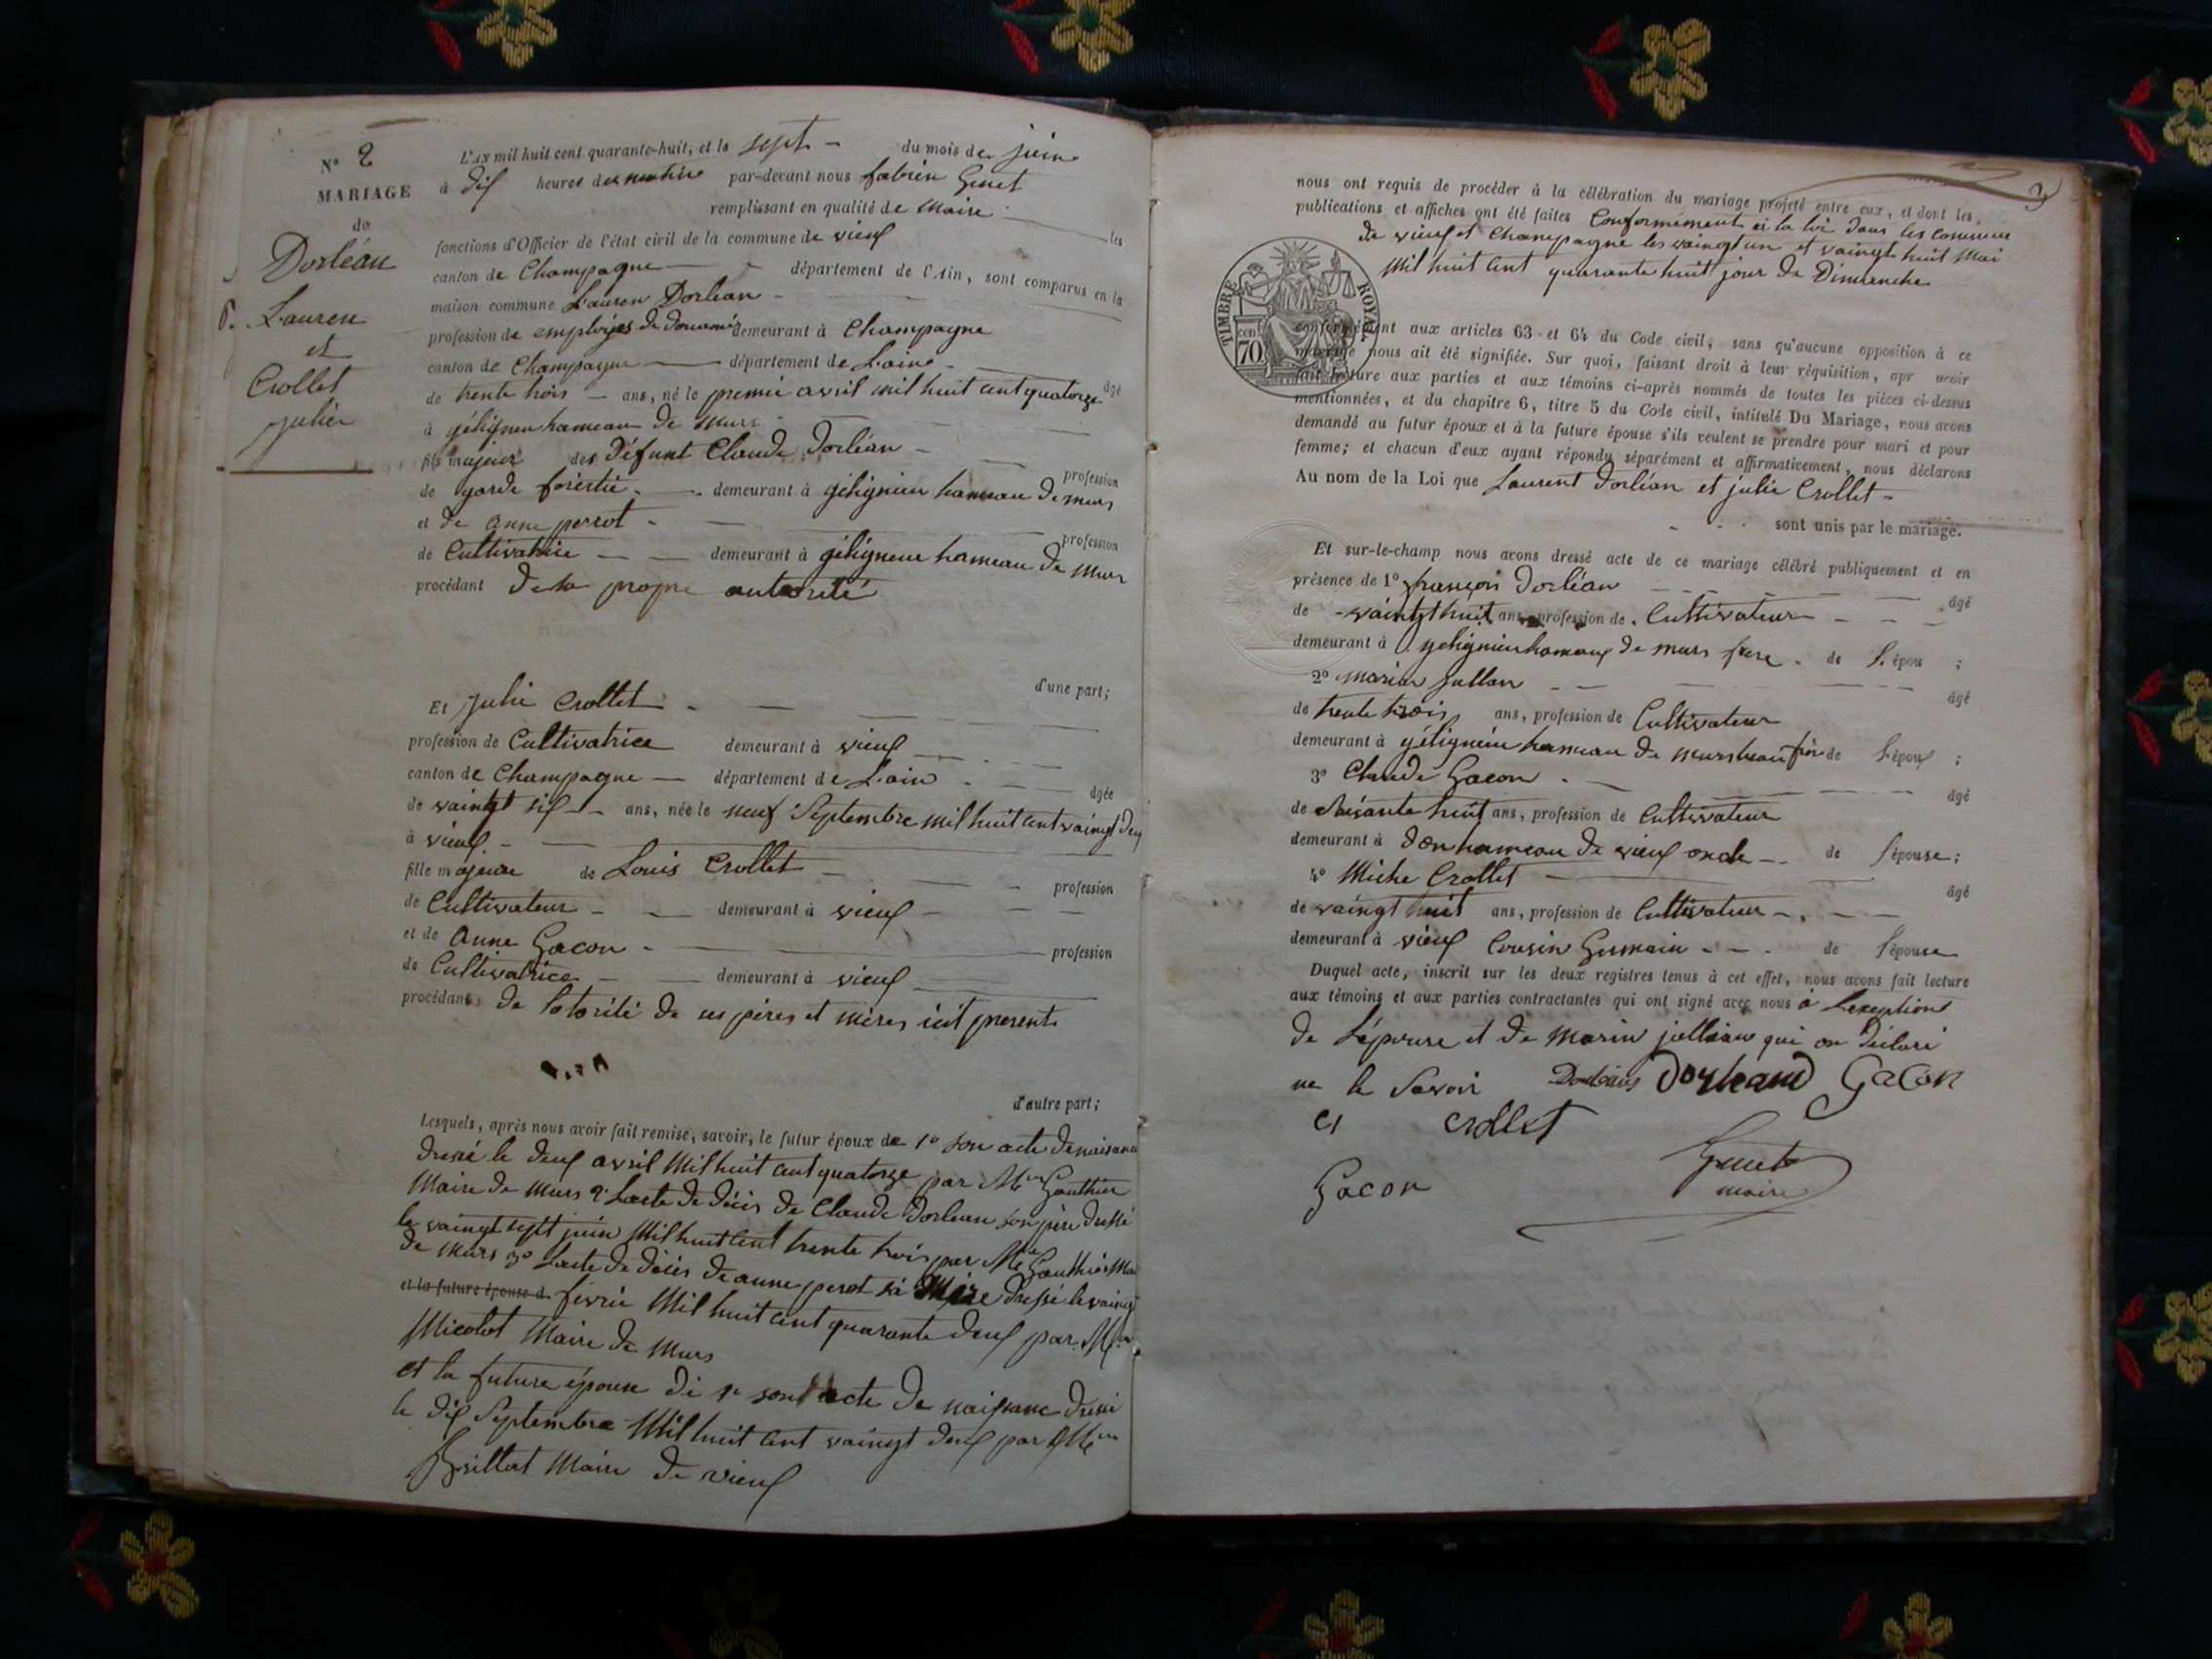 N° 2
MARIAGE
de
Dorléan
Lauren
et
Crollet
julie
L'AN mil huit cent quarante-huit, et le sept du mois de juin
à dix heures du matin par-devant nous fabien Genet
remplissant en qualité de Maire les
fonctions d'Officier de l'état civil de la commune de vieux
canton de Champagne département de l'Ain, sont comparus en la
maison commune Lauren Dorléan
profession de employés de douane demeurant à Champagne
canton de Champagne département de L'ain âgé
de trente trois ans, né le premié avril mil huit cent quatorze
à géligneu hameau de Murs
fils majeur des Défunt Claude Dorléan profession
de garde foréstié demeurant à géligneu hameau de murs
et de anne perrot profession
de Cultivatrice demeurant à géligneu hameau de Murs
procédant de sa propre autorité
d'une part;
Et Julie Crollet
profession de Cultivatrice demeurant à vieux
canton de Champagne département de L'ain âgée
de vaingt six ans, née le neuf Septembre mil huit cent vaingt deux
à vieux
fille majeure de Louis Crollet profession
de Cultivateur demeurant à vieux
et de Anne Gacon profession
de Cultivatrice demeurant à vieux
procédant de lotorité de ses pères et mères icit present
d'autre part;
Lesquels, après nous avoir fait remise, savoir, le futur époux de 1° son acte de naisance
dressé le deux avril Mil huit cent quatorze par Mr Gauthier
Maire de Murs 2° Lacte de décès de Claude Dorlean son père dressé
le vaingt sept juin Mil huit cent trente trois par Mr Gauthier
de Murs 3° Lacte de décès de anne perot sa Mère dressé le vaingt
et la future épouse d fevrie Mil huit cent quarante deux par Mr
Micolot Maire de Murs
et la future épouse de 1° son acte de naissance dressé
le dix Septembre Mil huit cent vaingt deux par Mr
Brillat Maire de vieux
3
nous ont requis de procéder à la célébration du mariage projeté entre eux, et dont les
publications et affiches ont été faites Conformément a la loi dans les commune
de vieux et Champagne les vaingt un et vaingt huit Mai
Mil huit cent quarante huit jour de Dimanche
TIMBRE ROYAL
CEN 70
conformément aux articles 63 et 64 du Code civil, sans qu'aucune opposition à ce
mariage nous ait été signifiée. Sur quoi, faisant droit à leur réquisition, apr avoir
fait lecture aux parties et aux témoins ci-après nommés de toutes les pièces ci-dessus
mentionnées, et du chapitre 6, titre 5 du Code civil, intitulé Du Mariage, nous avons
demandé au futur époux et à la future épouse s'ils veulent se prendre pour mari et pour
femme; et chacun d'eux ayant répondu séparément et affirmativement, nous déclarons
Au nom de la Loi que Laurent Dorléan et julie Crollet
sont unis par le mariage.
Et sur-le-champ nous avons dressé acte de ce mariage célébré publiquement et en
présence de 1° françois Dorléan âgé
de vaingt huit ans, profession de Cultivateur
demeurant à geligneu hameaux de murs frere de l'épou ;
2° Marin Jullian âgé
de trente trois ans, profession de Cultivateur
demeurant à géligneu hameau de murs beau frère de l'époux ;
3° Claude Gacon âgé
de Soisante huit ans, profession de Cultivateur
demeurant à don hameau de vieux oncle de l'épouse;
4° Miche Crollet âgé
de vaingt huit ans, profession de Cultivateur
demeurant à vieux Cousin Germain de l'épouse
Duquel acte, inscrit sur les deux registres tenus à cet effet, nous avons fait lecture
aux témoins et aux parties contractantes qui ont signé avec nous à Lexeption
de Lépouse et de Marin jullian qui on déclaré
ne le Savoir Dorléans Dorleand Gacon
Crollet
Genet
Gacon
maire